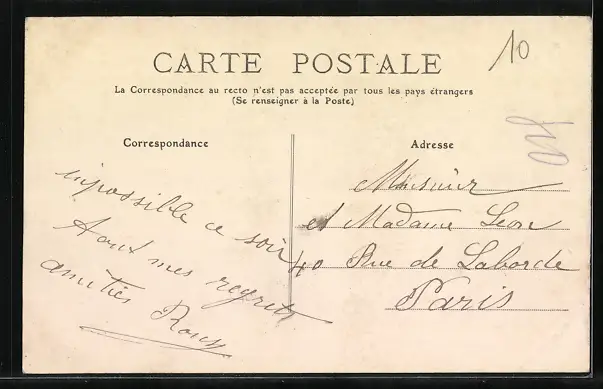 CARTE POSTALE
La Correspondance au recto n'est pas acceptée par tous les pays étrangers
(Se renseigner à la Poste)
10
Correspondance
impossible ce soir
mes regrets
amitiés
Adresse
Monsieur
et Madame Léon
40 Rue de Laborde
Paris